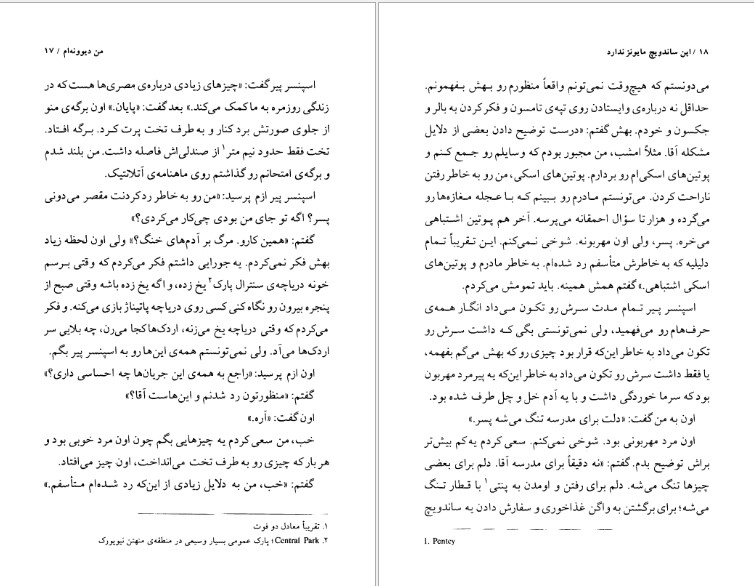 من دیوونه‌ام / ۱۷
اسپنسر پیر گفت: «چیزهای زیادی درباره‌ی مصری‌ها هست که در
زندگی روزمره به ما کمک می‌کند.» بعد گفت: «پایان.» اون برگه‌ی منو
از جلوی صورتش برد کنار و به طرف تخت پرت کرد. برگه افتاد.
تخت فقط حدود نیم متر۱ از صندلی‌اش فاصله داشت. من بلند شدم
و برگه‌ی امتحانم رو گذاشتم روی ماهنامه‌ی آتلانتیک.
اسپنسر پیر ازم پرسید: «من رو به خاطر رد کردنت مقصر می‌دونی
پسر؟ اگه تو جای من بودی چی‌کار می‌کردی؟»
گفتم: «همین کارو. مرگ بر آدم‌های خنگ؟» ولی اون لحظه زیاد
بهش فکر نمی‌کردم. یه جورایی داشتم فکر می‌کردم که وقتی برسم
خونه دریاچه‌ی سنترال پارک۲ یخ زده، و اگه یخ زده باشه وقتی صبح از
پنجره بیرون رو نگاه کنی کسی روی دریاچه پاتیناژ بازی می‌کنه. و فکر
می‌کردم که وقتی دریاچه یخ می‌زنه، اردک‌ها کجا می‌رن، چه بلایی سر
اردک‌ها می‌آد. ولی نمی‌تونستم همه‌ی این‌ها رو به اسپنسر پیر بگم.
اون ازم پرسید: «راجع به همه‌ی این جریان‌ها چه احساسی داری؟»
گفتم: «منظورتون رد شدنم و این‌هاست آقا؟»
اون گفت: «آره.»
خب، من سعی کردم یه چیزهایی بگم چون اون مرد خوبی بود و
هر بار که چیزی رو به طرف تخت می‌انداخت، اون چیز می‌افتاد.
گفتم: «خب، من به دلایل زیادی از این‌که رد شده‌ام متأسفم.»
۱. تقریباً معادل دو فوت
۲. Central Park؛ پارک عمومی بسیار وسیعی در منطقه‌ی منهتن نیویورک
۱۸ / این ساندویچ مایونز ندارد
می‌دونستم که هیچ‌وقت نمی‌تونم واقعاً منظورم رو بهش بفهمونم.
حداقل نه درباره‌ی وایستادن روی تپه‌ی تامسون و فکر کردن به بالر و
جکسون و خودم. بهش گفتم: «درست توضیح دادن بعضی از دلایل
مشکله آقا. مثلاً امشب، من مجبور بودم که وسایلم رو جمع کنم و
پوتین‌های اسکی‌ام رو بردارم. پوتین‌های اسکی، من رو به خاطر رفتن
ناراحت کردن. می‌تونستم مادرم رو ببینم که با عجله مغازه‌ها رو
می‌گرده و هزار تا سؤال احمقانه می‌پرسه. آخر هم پوتین اشتباهی
می‌خره. پسر، ولی اون مهربونه. شوخی نمی‌کنم. این تقریباً تمام
دلیلیه که به خاطرش متأسفم رد شده‌ام. به خاطر مادرم و پوتین‌های
اسکی اشتباهی.» گفتم همش همینه. باید تمومش می‌کردم.
اسپنسر پیر تمام مدت سرش رو تکون می‌داد انگار همه‌ی
حرف‌هام رو می‌فهمید، ولی نمی‌تونستی بگی که داشت سرش رو
تکون می‌داد به خاطر این‌که قرار بود چیزی رو که بهش می‌گم بفهمه،
یا فقط داشت سرش رو تکون می‌داد به خاطر این‌که یه پیرمرد مهربون
بود که سرما خوردگی داشت و با یه آدم خل و چل طرف شده بود.
اون به من گفت: «دلت برای مدرسه تنگ می‌شه پسر.»
اون مرد مهربونی بود. شوخی نمی‌کنم. سعی کردم یه‌کم بیش‌تر
براش توضیح بدم. گفتم: «نه دقیقاً برای مدرسه آقا. دلم برای بعضی
چیزها تنگ می‌شه. دلم برای رفتن و اومدن به پنتی۱ با قطار تنگ
می‌شه؛ برای برگشتن به واگن غذاخوری و سفارش دادن یه ساندویچ
1. Pentey